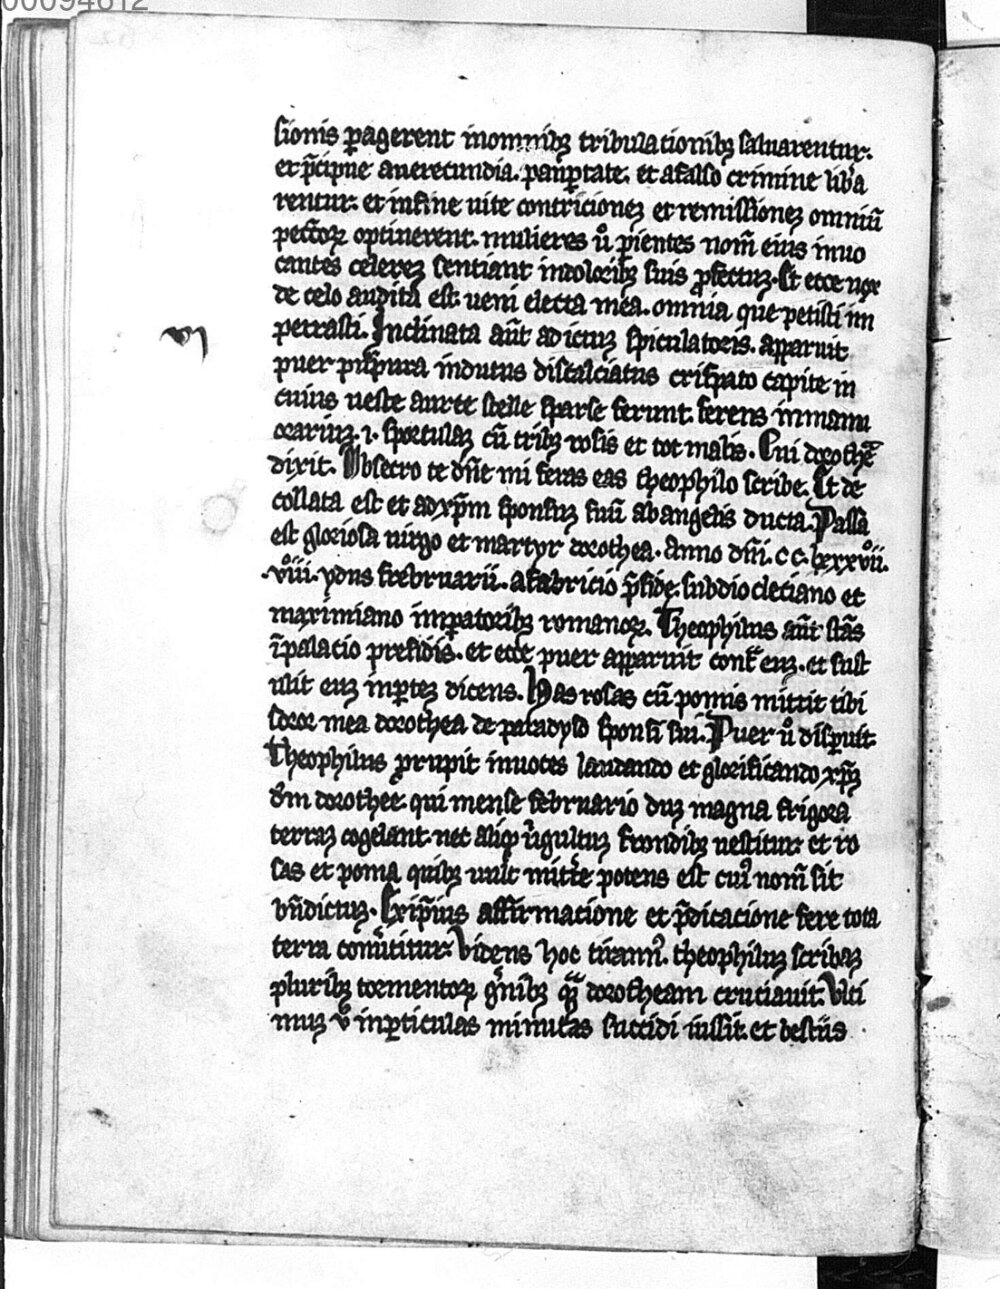 00094612
sionis ꝑagerent inomnibꝫ tribulationibꝫ saluarentur.
et p̄cipue auerecundia. pauꝑtate. et afalso crimine lib̾a
rentur. et infine uite contricioneꝫ et remissioneꝫ omniū
pecc̄oꝝ optinerent. mulieres u̾o p̄ientes nom̄ eius inuo
cantes celereꝫ sentiant indoloribꝫ suis ꝓfectuꝫ. Et ecce uox
de celo audita est. ueni electa mea. omnia que petisti im
petrasti. Inclinata aūt ad ictuꝫ spiculatoris. apparuit
puer purpura indutus discalciatus crispato capite in
cuius ueste auree stelle sparse ferunt. ferens inmanu
orariuꝫ .i. sportulaꝫ cū tribꝫ rosis et tot malis. Cui dorothea
dixit. Obsecro te dn̄e mi feras eas theophilo scribe. Et de
collata est et adxp̄m sponsuꝫ suū abangelis ducta. Passa
est gloriosa uirgo et martyr dorothea. Anno dn̄i. cc. lxxxvii.
.viii. ydus febrruarii. afabricio p̄side. subdiocletiano et
maximiano imꝑatoribꝫ romanoꝝ. Theophilus aūt stās
ī palacio presidis. et ecce puer apparuit cont̄ euꝫ. et sust
ulit euꝫ inꝑteꝫ dicens. Has rosas cū pomis mittit tibi
soror mea dorothea de paradyso sponsi sui. Puer u̾o disꝑuit
Theophilus ꝓrupit inuoces laudando et glorificando xp̄ꝫ
dm̄ dorothee. qui mense februario duꝫ magna frigora
terraꝫ cogelant. nec aliqꝫ uirgultuꝫ frondibꝫ uestitur. et ro
sas et poma quibꝫ uult mitt̾e potens est cui᷒ nom̄ sit
bn̄dictuꝫ. Ex ip̄ius affirmacione et p̄dicacione fere tota
terra conu̾titur. Videns hoc tirann᷒. theophiluꝫ scribaꝫ
pluribꝫ tormentoꝝ gn̾ibꝫ qͣꝫ dorotheam cruciauit. Vlti
muꝫ u̾o inꝑticulas minutas succidi iussit. et bestiis